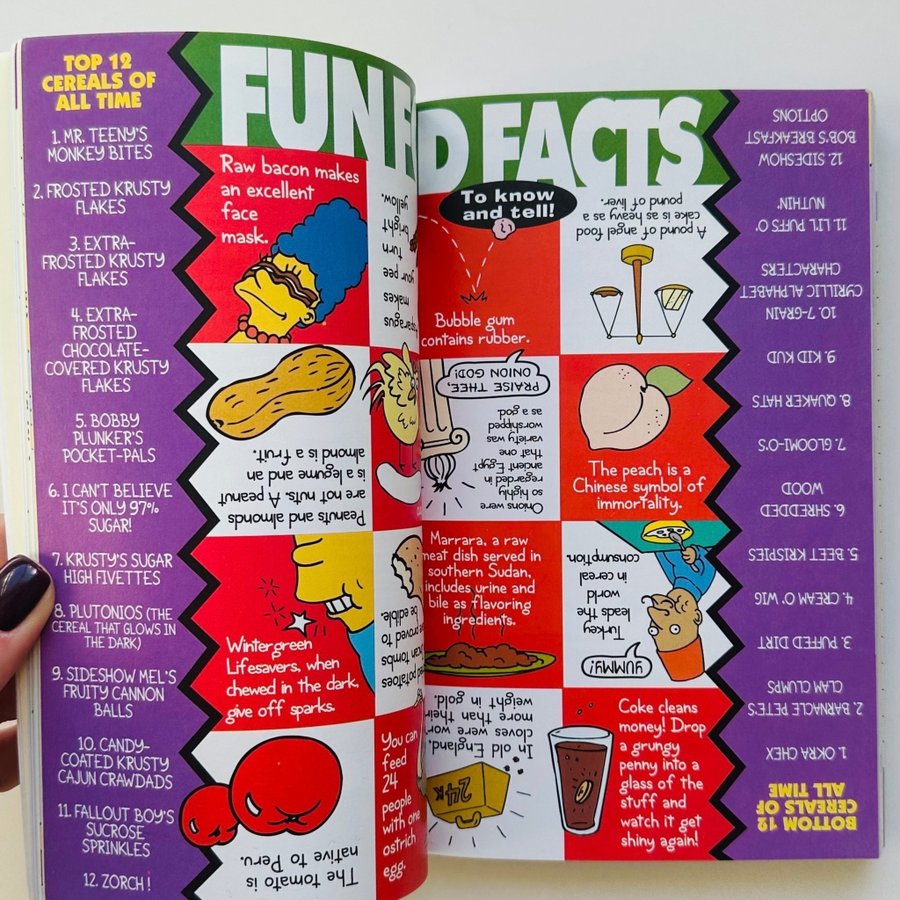 TOP 12
CEREALS OF
ALL TIME
1. MR. TEENY'S
MONKEY BITES
2. FROSTED KRUSTY
FLAKES
3. EXTRA-
FROSTED KRUSTY
FLAKES
4. EXTRA-
FROSTED
CHOCOLATE-
COVERED KRUSTY
FLAKES
5. BOBBY
PLUNKER'S
POCKET-PALS
6. I CAN'T BELIEVE
IT'S ONLY 97%
SUGAR!
7. KRUSTY'S SUGAR
HIGH FIVETTES
8. PLUTONIOS (THE
CEREAL THAT GLOWS IN
THE DARK)
9. SIDESHOW MEL'S
FRUITY CANNON
BALLS
10. CANDY-
COATED KRUSTY
CAJUN CRAWDADS
11. FALLOUT BOY'S
SUCROSE
SPRINKLES
12. ZORCH!
FUN F
D FACTS
To know
and tell!
Raw bacon makes
an excellent
face
mask.
makes
your pee
turn
bright
yellow.
Bubble gum
contains rubber.
A pound of angel food
cake is as heavy as a
pound of liver.
Peanuts and almonds
are not nuts. A peanut
is a legume and an
almond is a fruit.
PRAISE THEE,
ONION GOD!
Onions were
so highly
regarded in
ancient Egypt
that one
variety was
worshipped
as a god.
The peach is a
Chinese symbol of
immortality.
Wintergreen
Lifesavers, when
chewed in the dark,
give off sparks.
potatoes
tombs
proved to
be edible.
Marrara, a raw
meat dish served in
southern Sudan,
includes urine and
bile as flavoring
ingredients.
Turkey
leads the
world
in cereal
consumption.
YUMMY!
The tomato is
native to Peru.
You can
feed
24
people
with one
ostrich
egg.
In old England,
cloves were worth
more than their
weight in gold.
24K
Coke cleans
money! Drop
a grungy
penny into a
glass of the
stuff and
watch it get
shiny again!
BOTTOM 12
CEREALS OF
ALL TIME
1. OKRA CHEX
2. BARNACLE PETE'S
CLAM CLUMPS
3. PUFFED DIRT
4. CREAM O' WIG
5. BEET KRISPIES
6. SHREDDED
WOOD
7. GLOOMI-O'S
8. QUAKER HATS
9. KID KUD
10. 7-GRAIN
CYRILLIC ALPHABET
CHARACTERS
11. LI'L PUFFS O'
NUTHIN'
12. SIDESHOW
BOB'S BREAKFAST
OPTIONS